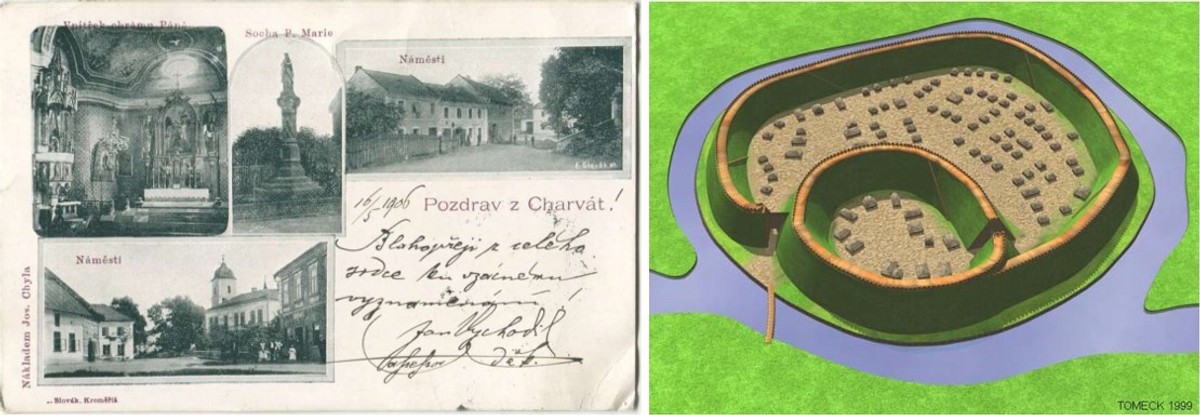 Vnitřek chrámu Páně
Socha P. Marie
Náměstí
16/5 1906 Pozdrav z Charvát!
Blahopřeji z celého
srdce ku vzácnému
vyznamenání!
Jan Vychodil
Náměstí
Nákladem Jos. Chyla
Slovák, Kroměříž
TOMECK 1999